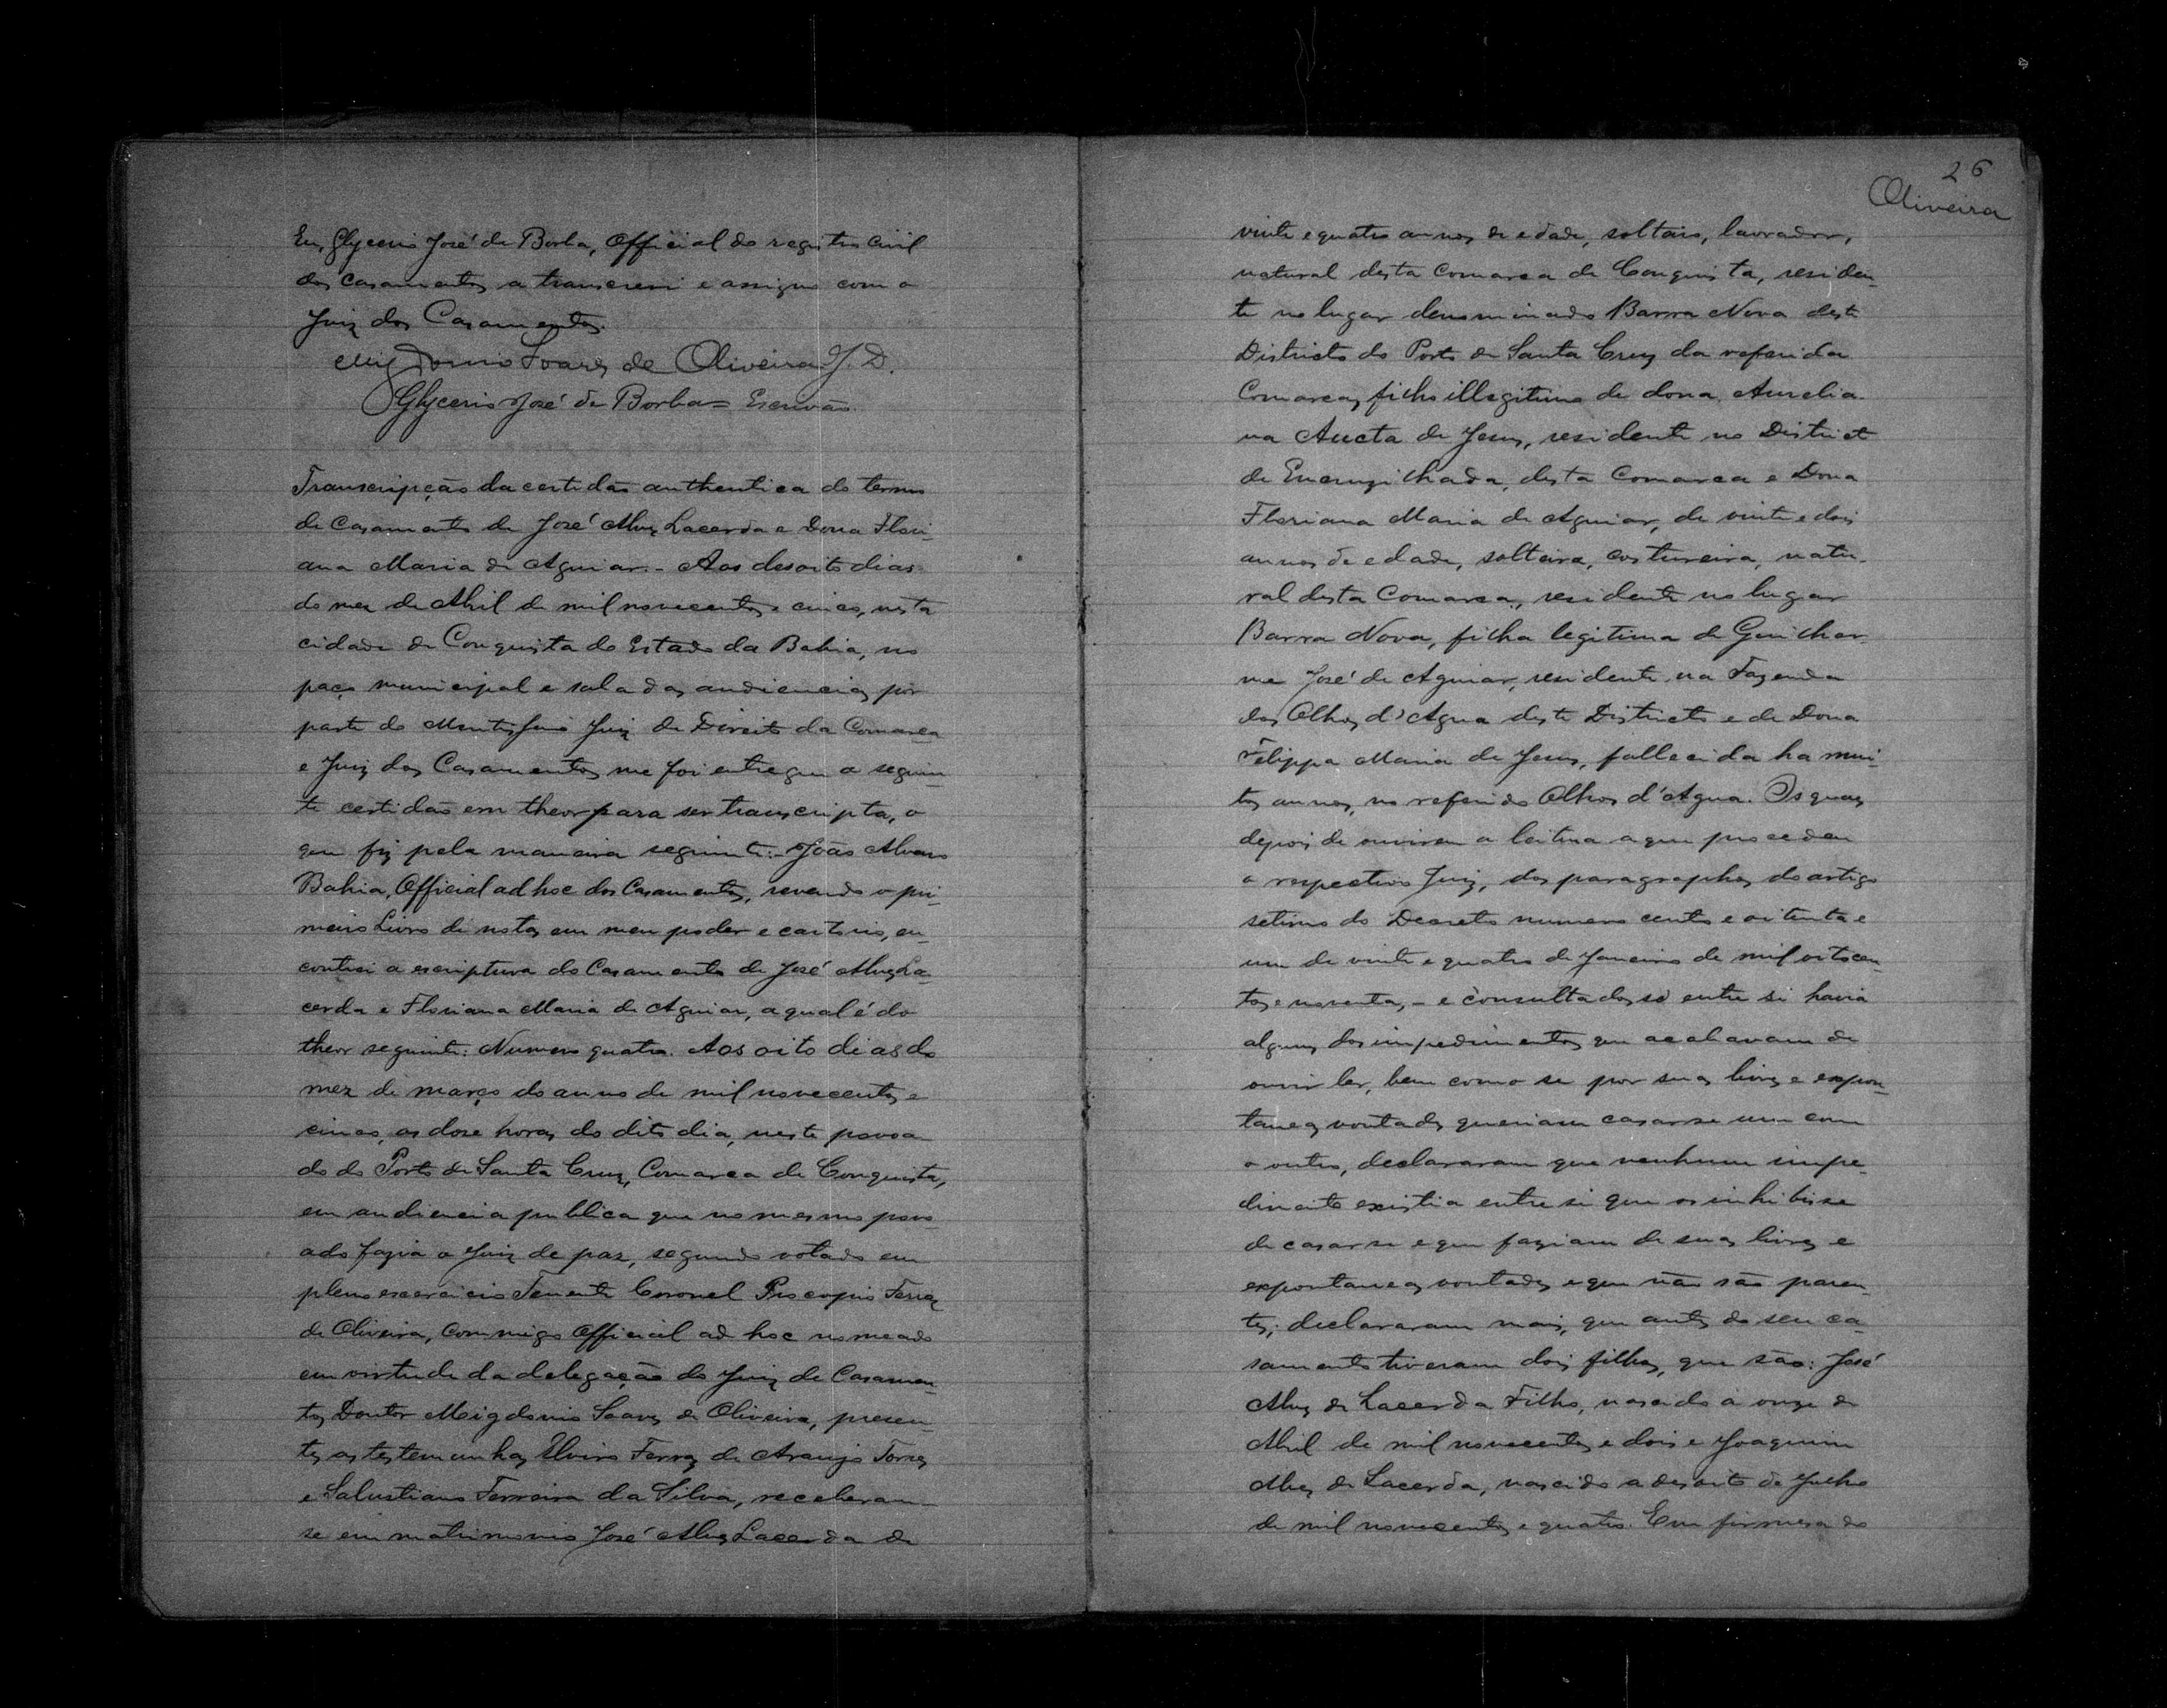 Eu, Glycerio José de Borba, Official do registro civil
dos casamentos a transcrevi e assigno com o
Juiz dos Casamentos.
Migdonio Soares de Oliveira J. D.
Glycerio José de Borba = Escrivão.
Transcripção da certidão authentica do termo
de Casamento de José Alves Lacerda e Dona Flori-
ana Maria de Aguiar. - Aos desoito dias
do mez de Abril de mil novecentos e cinco, nesta
cidade de Conquista do Estado da Bahia, no
paço municipal e sala das audiencias por
parte do Meritissimo Juiz de Direito da Comarca
e Juiz dos Casamentos me foi entregue a seguin-
te certidão em theor para ser transcripta, o
que fiz pela maneira seguinte: - João Alvaro
Bahia, Official ad hoc dos Casamentos, revendo o pri-
meiro Livro de notas em meu poder e cartorio, en-
contrei a escriptura do Casamento de José Alves La-
cerda e Floriana Maria de Aguiar, a qual é do
theor seguinte: Numero quatro. Aos oito dias do
mez de março do anno de mil novecentos e
cinco, as dose horas do dito dia, neste povoa
do do Porto de Santa Cruz, Comarca de Conquista,
em audiencia publica que no mesmo povo
ado fazia o Juiz de paz, segundo votado em
pleno exercicio Tenente Coronel Procopio Ferraz
de Oliveira, commigo Official ad hoc nomeado
em virtude da delegação do Juiz de Casamen-
tos Doutor Meigdonio Soares de Oliveira, presen-
tes as testemunhas Elviro Ferraz de Araujo Torres
e Salustiano Ferreira da Silva, receberam-
se em matrimonio José Alves Lacerda de
26
Oliveira
vinte e quatro annos de edade, soltero, lavrador,
natural desta Comarca de Conquista, residen-
te no lugar denominado Barra Nova deste
Districto do Porto de Santa Cruz da referida
Comarca, filho illegitimo de dona Aurelia-
na Aucta de Jesus, residente no District
de Encruzilhada, desta Comarca e Dona
Floriana Maria de Aguiar, de vinte e dois
annos de edade, solteira, costureira, natu-
ral desta Comarca, residente no lugar
Barra Nova, filha legitima de Guilher-
me José de Aguiar, residente na Fazenda
dos Olhos d'Agua deste Districto e de Dona
Filippa Maria de Jesus, fallecida ha mui-
tos annos, no referido Olhos d'Agua. Os quaes
depois de ouvirem a leitura a que procedeu
o respectivo Juiz, dos paragraphos do artigo
setimo do Decreto numero cento e oitenta e
um de vinte e quatro de Janeiro de mil oitocen-
tos e noventa, - e consultados se entre si havia
algum dos impedimentos que acabavam de
ouvir ler, bem como se por suas livres e expon-
taneas vontades queriam casar-se um com
o outro, declararam que nenhum impe-
dimento existia entre si que os inhibisse
de casar-se e que faziam de suas livres e
expontaneas vontades e que não são paren-
tes; declararam mais, que antes do seu ca-
samento tiveram dois filhos, que são: José
Alves de Lacerda Filho, nascido a onze de
Abril de mil novecentos e dois e Joaquim
Alves de Lacerda, nascido a desoito de Julho
de mil novecentos e quatro. Em firmesa do